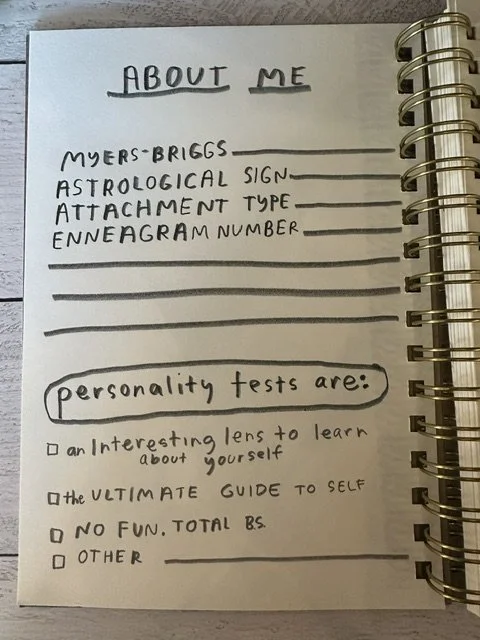 ABOUT ME
MYERS-BRIGGS
ASTROLOGICAL SIGN
ATTACHMENT TYPE
ENNEAGRAM NUMBER
personality tests are:
an Interesting lens to learn
about yourself
the ULTIMATE GUIDE TO SELF
NO FUN. TOTAL B.S.
OTHER